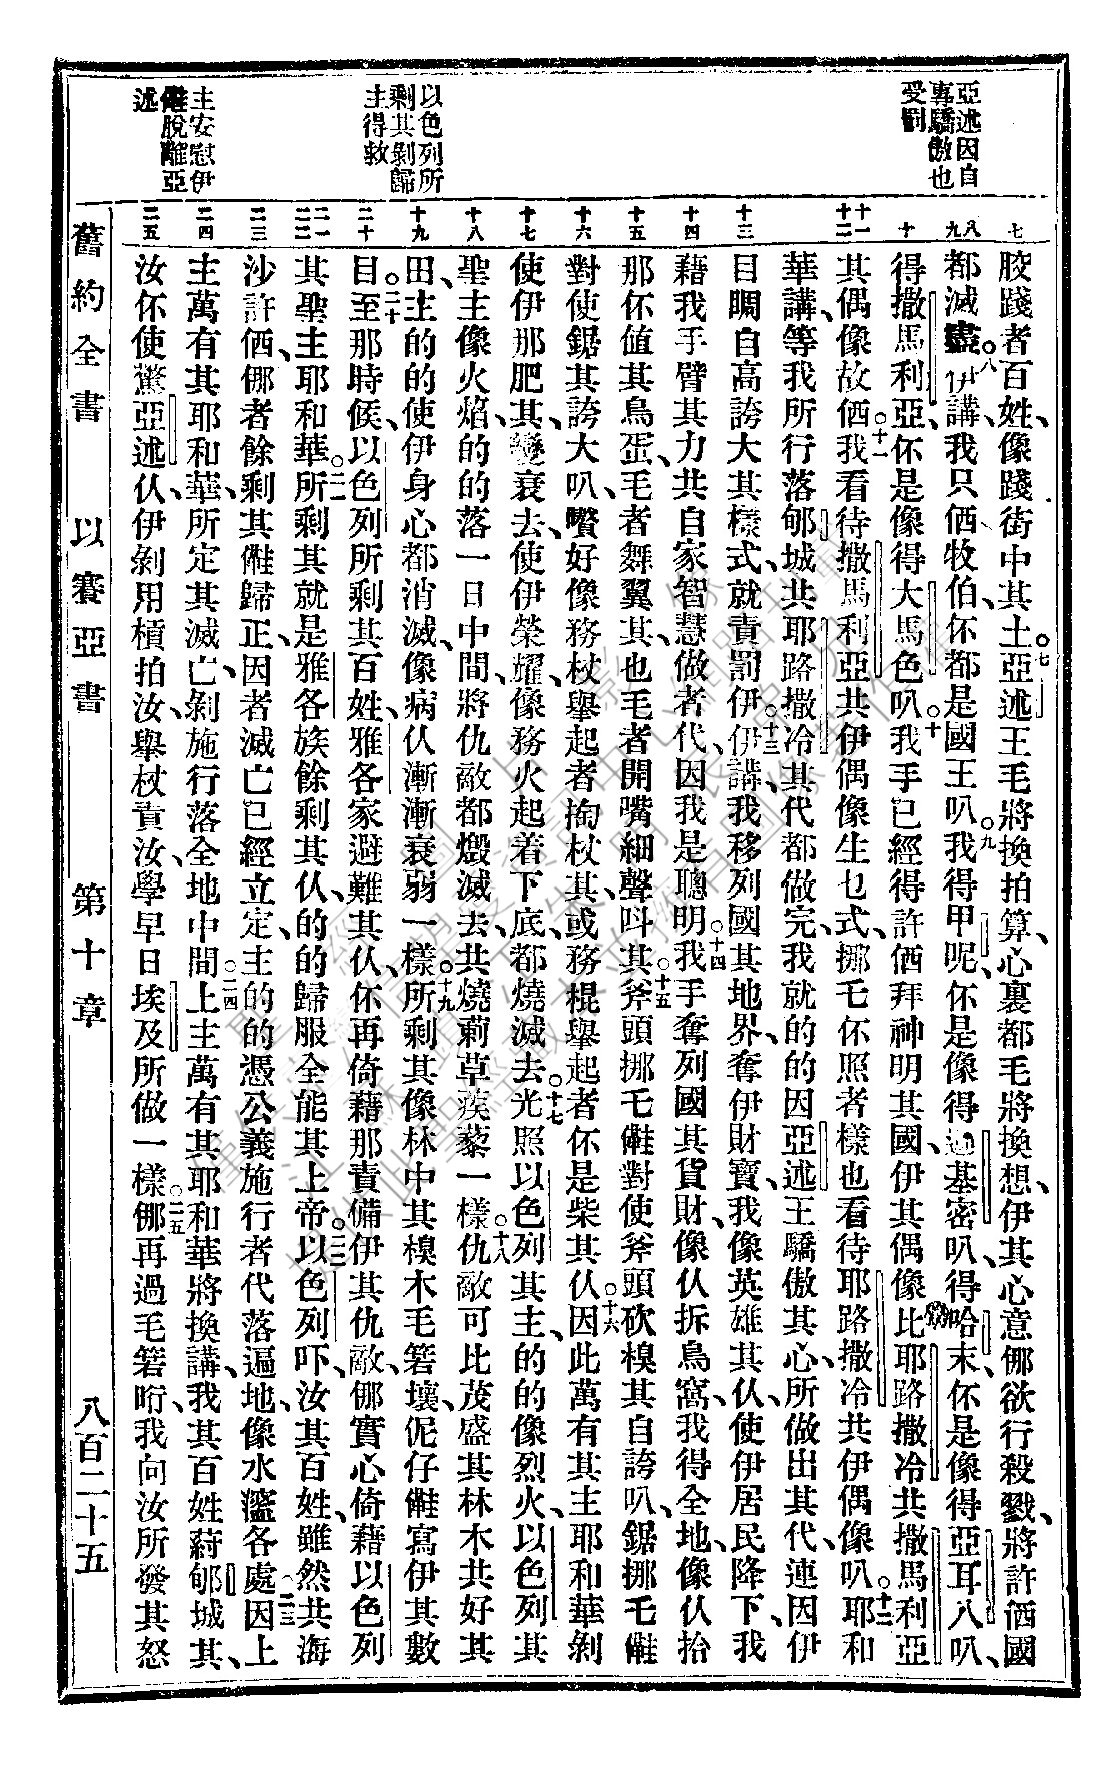 亞述因自
專驕傲也
受罰
以色列所
剩其剝歸
主得救
主安慰伊
㑚脫離亞
述
七
八 九
十
十一 十二
十三
十四
十五
十六
十七
十八
十九
二十
二一 二二
二三
二四
二五
胶踐者百姓、像踐街中其土。七亞述王毛將換拍算、心裏都毛將換想、伊其心意㑚欲行殺戮、將許㑚國
都滅盡。八伊講、我只㑚牧伯、伓都是國王叭。九我得甲呢、伓是像得迦基密叭、得哈末、伓是像得亞耳八叭、
得撒馬利亞伓是像得大馬色叭。十我手已經得許㑚拜神明其國、伊其偶像比耶路撒冷共撒馬利亞
其偶像故㑚。十一我看待撒馬利亞共伊偶像生乜式、挪乇伓照者樣也看待耶路撒冷共伊偶像叭。十二耶和
華講、等我所行落郇城共耶路撒冷其代都做完、我就的的因亞述王驕傲其心、所做出其代、連因伊
目睭自高誇大其樣式、就責罰伊。十三伊講、我移列國其地界、奪伊財寶、我像英雄其仈、使伊居民降下、我
藉我手臂其力共自家智慧做者代、因我是聰明。十四我手奪列國其貨財、像仈拆鳥窩、我得全地、像仈拾
那伓值其鳥蛋、毛者舞翼其、也毛者開嘴細聲呌其。十五斧頭挪乇㑚對使斧頭砍樔其自誇叭、鋸挪乇㑚
對使鋸其誇大叭、囋好像務杖舉起者掏杖其、或務棍舉起者伓是柴其仈。十六因此萬有其主耶和華剝
使伊那肥其、變衰去、使伊榮耀、像務火起着下底、都燒滅去。十七光照以色列其主、的的像烈火、以色列其
聖主像火焰、的的落一日中間、將仇敵都燬滅去、共燒薊草蒺藜一樣。十八仇敵可比茂盛其林木共好其
田、主的的使伊身心都消滅、像病仈漸漸衰弱一樣。十九所剩其像林中其樔木毛䇹壞、伲仔㑚寫伊其數
目。二十至那時候、以色列所剩其百姓、雅各家避難其仈、伓再倚藉那責備伊其仇敵、㑚實心倚藉以色列
其聖主耶和華。二一所剩其就是雅各族餘剩其仈、的的歸服全能其上帝。二二以色列吓、汝其百姓、雖然共海
沙許㑚、㑚者餘剩其㑚歸正、因者滅亡已經立定、主的的憑公義施行者代落遍地、像水濫各處。二三因上
主萬有其耶和華、所定其滅亡、剝施行落全地中間。二四上主萬有其耶和華將換講、我其百姓蒔郇城其、
汝伓使驚亞述仈、伊剝用槓拍汝、舉杖責汝、學早日埃及所做一樣。二五㑚再過毛䇹䀪、我向汝所發其怒
舊約全書 以賽亞書 第十章 八百二十五